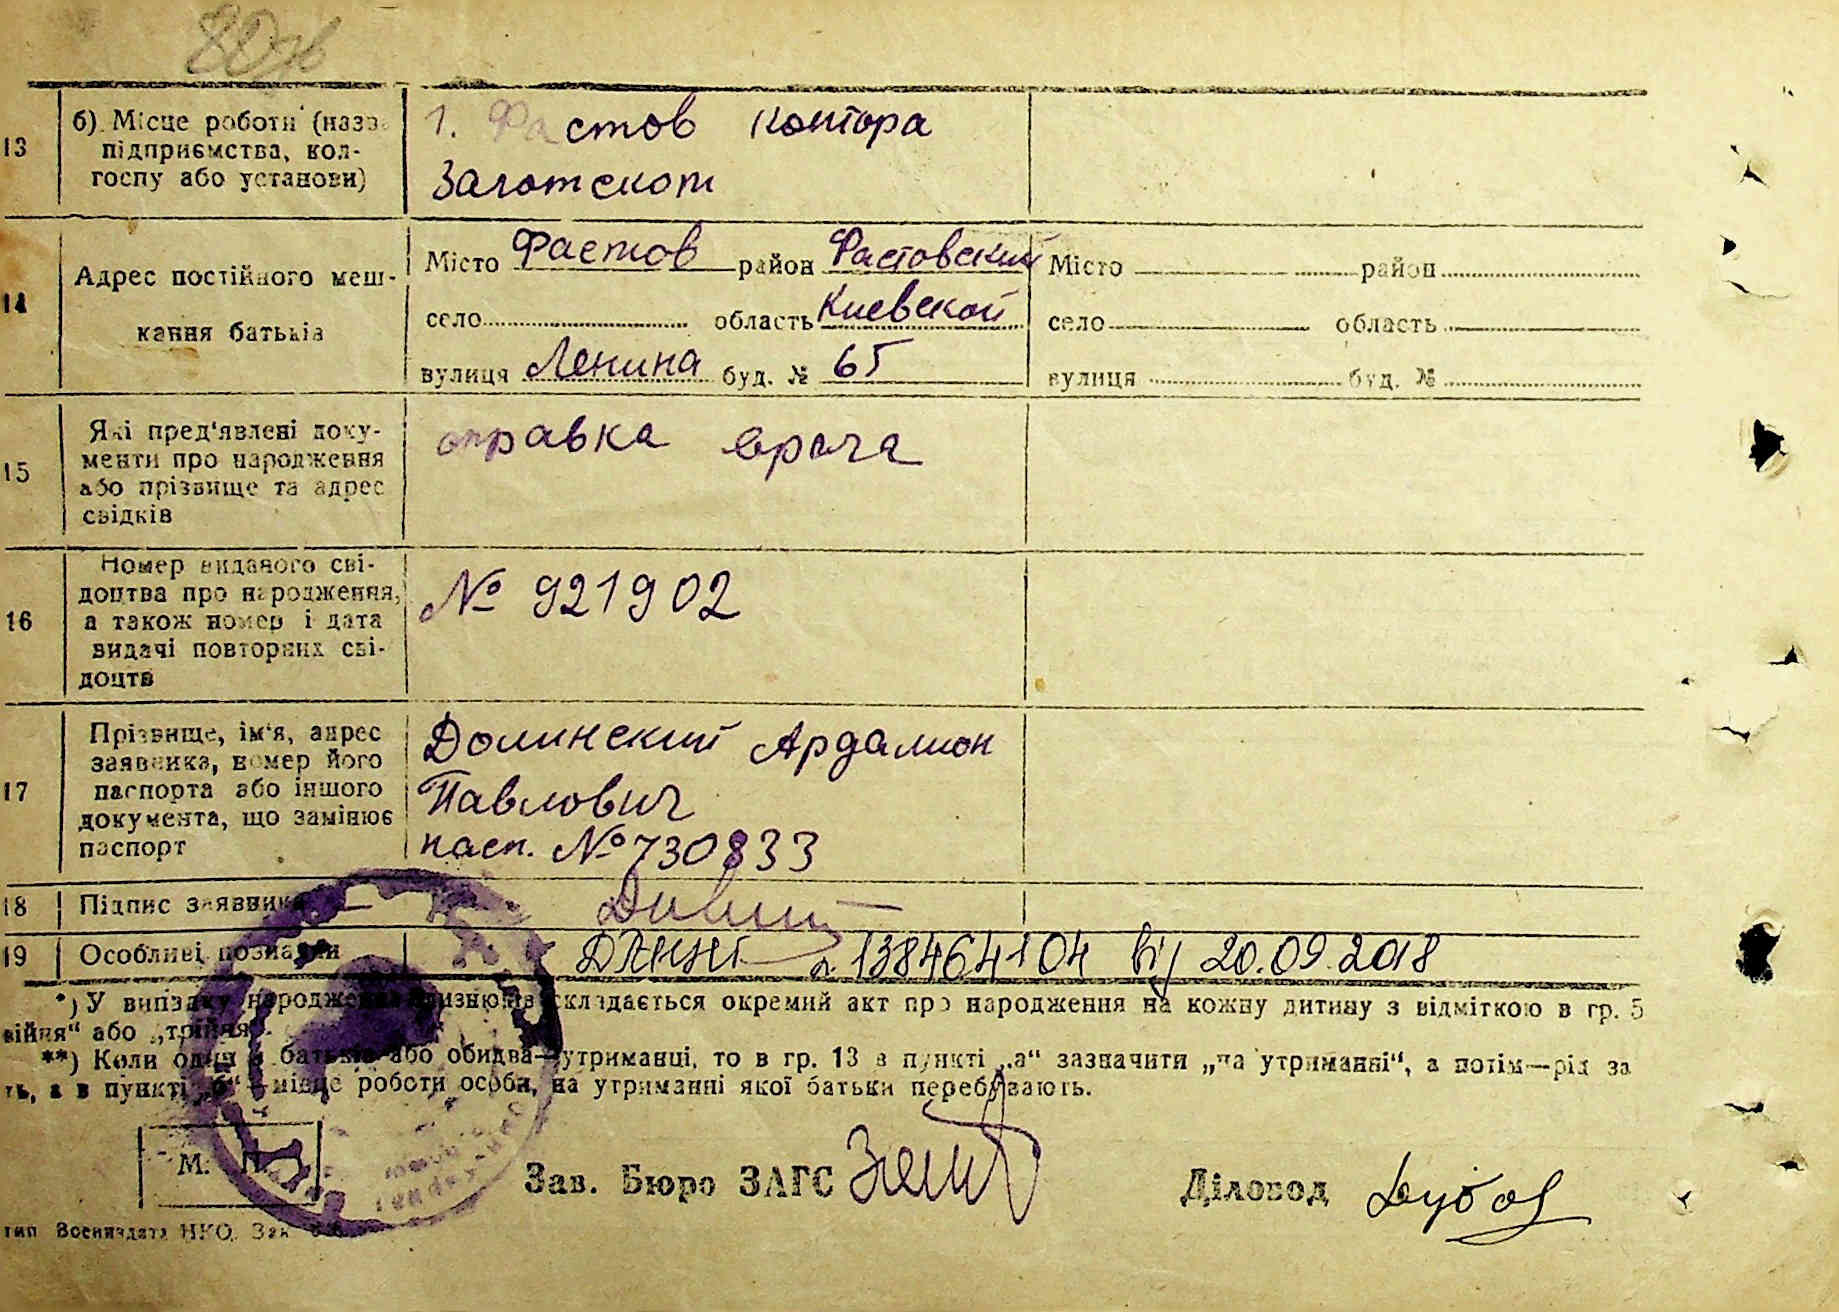 80 зв
13 б) Місце роботи (назва підприємства, кол-госпу або установи)
1. Фастов контора
Заготскот
14 Адрес постійного меш-
кання батьків
Місто Фастов район Фастовский Місто район
село область Киевской село область
вулиця Ленина буд. № 65 вулиця буд. №
15 Які пред'явлені доку-
менти про народження
або прізвище та адрес
свідків
справка врача
16 Номер виданого сві-
доцтва про народження,
а також номер і дата
видачі повторних сві-
доцтв
№ 921902
17 Прізвище, ім'я, адрес
заявника, номер його
паспорта або іншого
документа, що замінює
паспорт
Долинский Ардалион
Павлович
пасп. № 730833
18 Підпис заявника
19 Особливі позначки 138464104 від 20.09.2018
*) У випадку народження близнюків складається окремий акт про народження на кожну дитину з відміткою в гр. 5
війня“ або „трійня“.
**) Коли один з батьків або обидва—утриманці, то в гр. 13 в пункті „а“ зазначити „на утриманні“, а потім—рід за
ть, а в пункті „б“—місце роботи особи, на утриманні якої батьки перебувають.
М. П.
Зав. Бюро ЗАГС Діловод
тип Воениздата НКО. Зак.